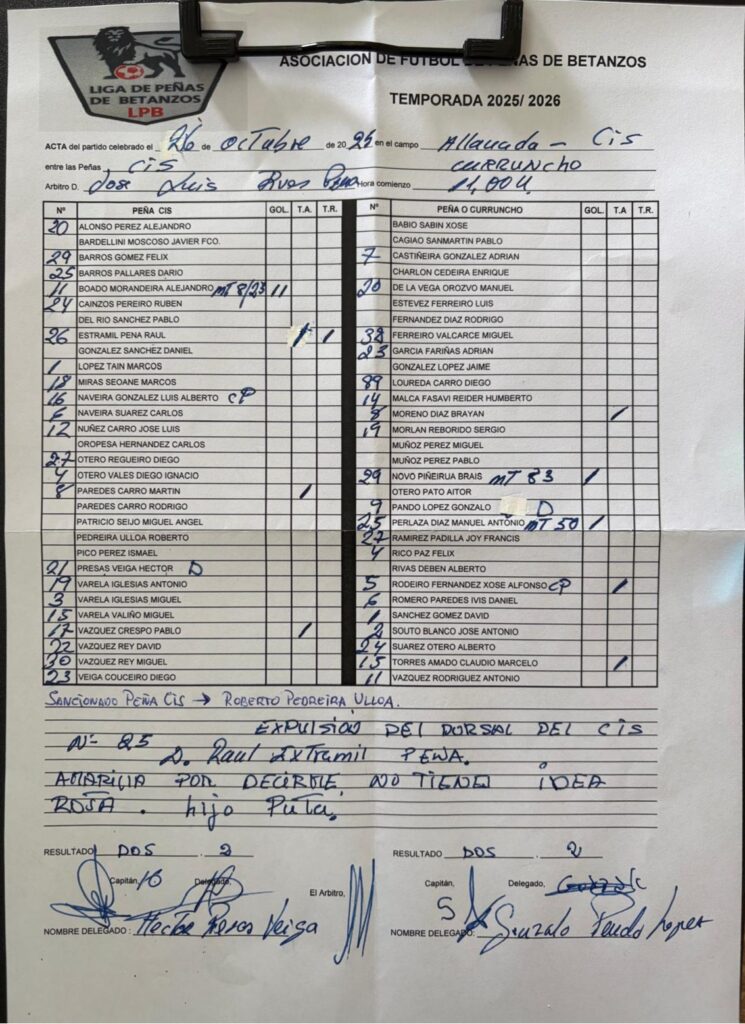 ASOCIACION DE FUTBOL DE PEÑAS DE BETANZOS
LIGA DE PEÑAS
DE BETANZOS
LPB
TEMPORADA 2025/ 2026
ACTA del partido celebrado el 26 de octubre de 2025 en el campo Allamada - Cis
entre las Peñas, CIS CURRUNCHO
Arbitro D. Jose Luis Hora comienzo 11,00H
Nº PEÑA CIS GOL. T.A. T.R. Nº PEÑA O CURRUNCHO GOL. T.A T.R.
20 ALONSO PEREZ ALEJANDRO BABIO SABIN XOSE
BARDELLINI MOSCOSO JAVIER FCO. CAGIAO SANMARTIN PABLO
29 BARROS GOMEZ FELIX 7 CASTIÑEIRA GONZALEZ ADRIAN
25 BARROS PALLARES DARIO CHARLON CEDEIRA ENRIQUE
11 BOADO MORANDEIRA ALEJANDRO MT 8/23 11 20 DE LA VEGA OROZVO MANUEL
24 CAINZOS PEREIRO RUBEN ESTEVEZ FERREIRO LUIS
DEL RIO SANCHEZ PABLO FERNANDEZ DIAZ RODRIGO
26 ESTRAMIL PENA RAUL / / 38 FERREIRO VALCARCE MIGUEL
GONZALEZ SANCHEZ DANIEL 23 GARCIA FARIÑAS ADRIAN
1 LOPEZ TAIN MARCOS GONZALEZ LOPEZ JAIME
18 MIRAS SEOANE MARCOS 89 LOUREDA CARRO DIEGO
16 NAVEIRA GONZALEZ LUIS ALBERTO CP 14 MALCA FASAVI REIDER HUMBERTO
6 NAVEIRA SUAREZ CARLOS 8 MORENO DIAZ BRAYAN /
12 NUÑEZ CARRO JOSE LUIS 19 MORLAN REBORIDO SERGIO
OROPESA HERNANDEZ CARLOS MUÑOZ PEREZ MIGUEL
27 OTERO REGUEIRO DIEGO MUÑOZ PEREZ PABLO
4 OTERO VALES DIEGO IGNACIO 29 NOVO PIÑEIRUA BRAIS MT 83 /
8 PAREDES CARRO MARTIN / OTERO PATO AITOR
PAREDES CARRO RODRIGO 9 PANDO LOPEZ GONZALO D
PATRICIO SEIJO MIGUEL ANGEL 25 PERLAZA DIAZ MANUEL ANTONIO MT 50 /
PEDREIRA ULLOA ROBERTO 27 RAMIREZ PADILLA JOY FRANCIS
PICO PEREZ ISMAEL 4 RICO PAZ FELIX
21 PRESAS VEIGA HECTOR D RIVAS DEBEN ALBERTO
19 VARELA IGLESIAS ANTONIO 5 RODEIRO FERNANDEZ XOSE ALFONSO CP /
3 VARELA IGLESIAS MIGUEL 6 ROMERO PAREDES IVIS DANIEL
15 VARELA VALIÑO MIGUEL 1 SANCHEZ GOMEZ DAVID
17 VAZQUEZ CRESPO PABLO / 2 SOUTO BLANCO JOSE ANTONIO
22 VAZQUEZ REY DAVID 24 SUAREZ OTERO ALBERTO
30 VAZQUEZ REY MIGUEL 15 TORRES AMADO CLAUDIO MARCELO /
23 VEIGA COUCEIRO DIEGO 11 VAZQUEZ RODRIGUEZ ANTONIO
SANCIONADO PEÑA CIS → ROBERTO PEDREIRA ULLOA.
EXPULSION DEL DORSAL DEL CIS
Nº D. Raul Extramil PENA.
AMARILLA POR DECIRME, NO TIENEN IDEA
ROJA. hijo Puta.
RESULTADO DOS. 2 RESULTADO DOS. 2
Capitán, 16 Delegado, El Arbitro, Capitán, 5 Delegado,
NOMBRE DELEGADO: Veiga NOMBRE DELEGADO: Gonzalo Pando Lopez